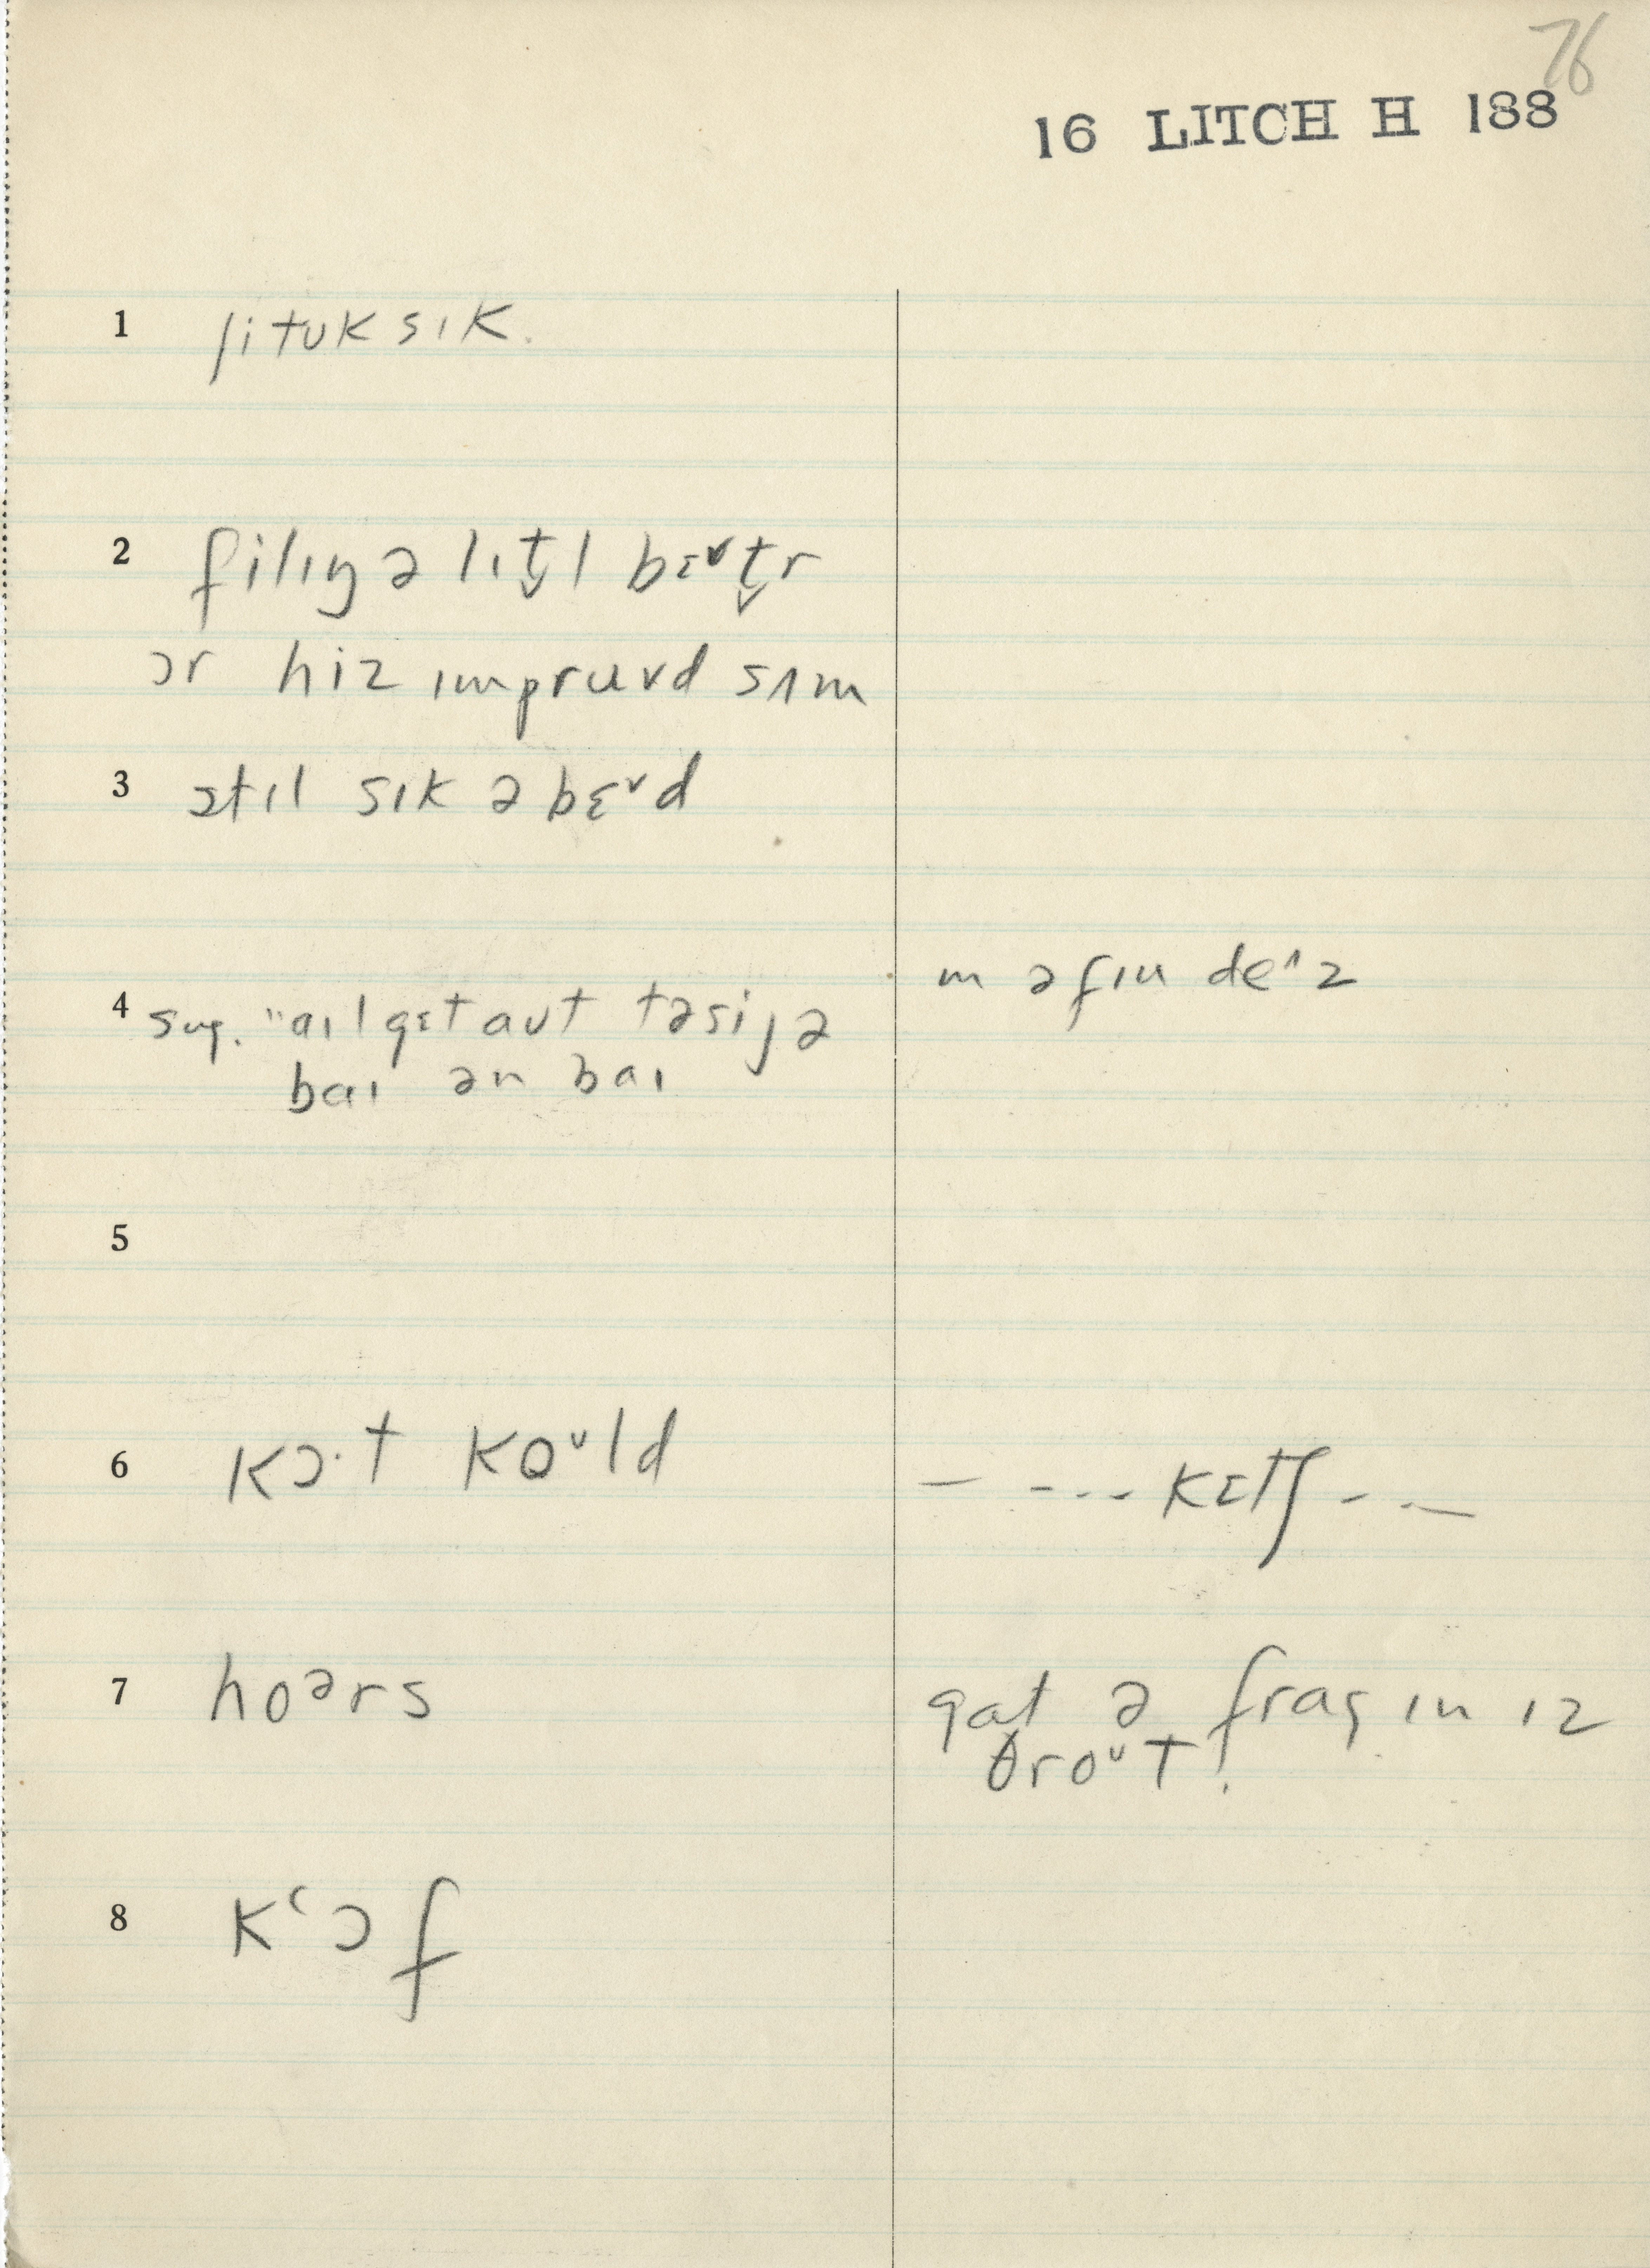 76
16 LITCH H 188
1 ʃitʊk sɪk.
2 filɪŋ ə lɪt̬l bɛᵛt̬r
ɔr hiz ɪmpruvd sʌm
3 stɪl sɪk ə bɛᵛd
4 sug. "aɪl gɛt aʊt təsijə
baɪ ən baɪ
ɪn ə fɪu deᶺz
5
6 kɔ·t koᶷld
— -... kɛtʃ - . —
7 hoᵊrs
gat ə frag ɪn ɪz
θroᶷt.
8 kʻɔf